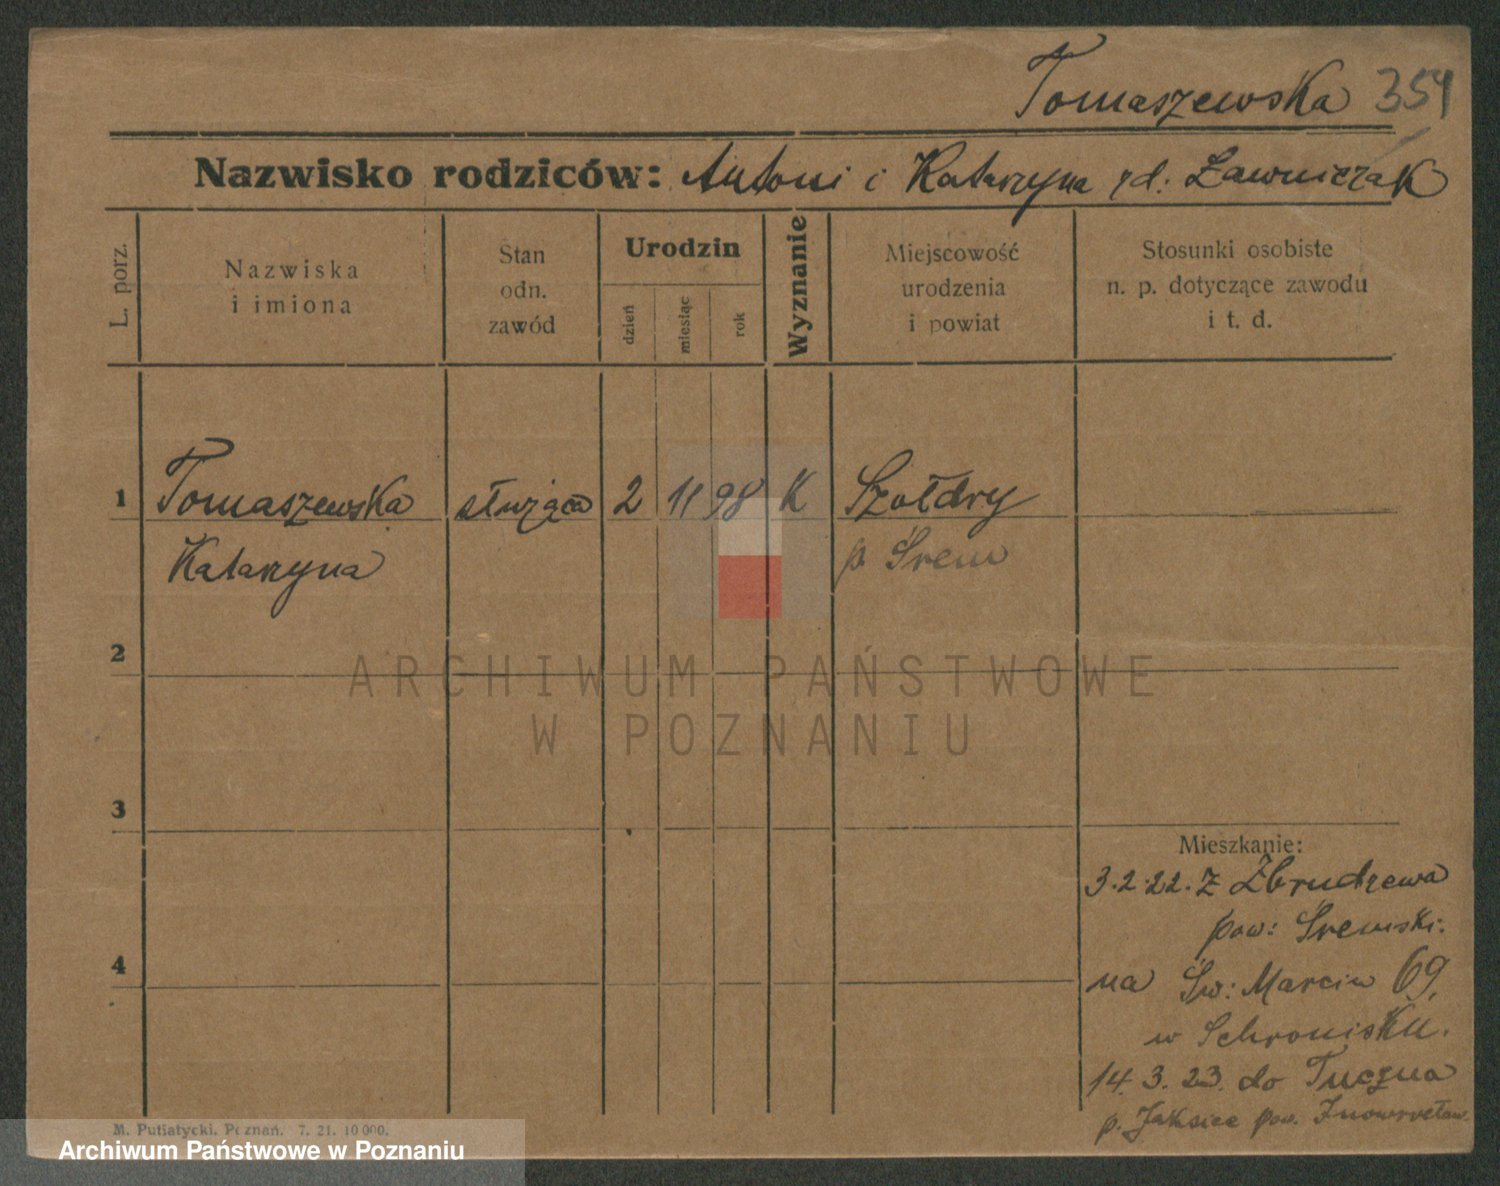 Tomaszewska 354
Nazwisko rodziców: Antoni i Katarzyna rd: Ławniczak
L. porz.
Nazwiska
i imiona
Stan
odn.
zawód
Urodzin
dzień
miesiąc
rok
Wyznanie
Miejscowość
urodzenia
i powiat
Stosunki osobiste
n. p. dotyczące zawodu
i t. d.
1 Tomaszewska służąca 2 11 98 K Szołdry
Katarzyna p. Śrem
2
ARCHIWUM PAŃSTWOWE
W POZNANIU
3
Mieszkanie:
3.2.22. z Zbrudzewa
pow: Śremski.
4
na Św: Marcin 69.
w Schronisku.
14.3.23. do Tuczna
p. Jaksice pow. Inowrocław.
M. Putiatycki, Poznań. 7. 21. 10000.
Archiwum Państwowe w Poznaniu